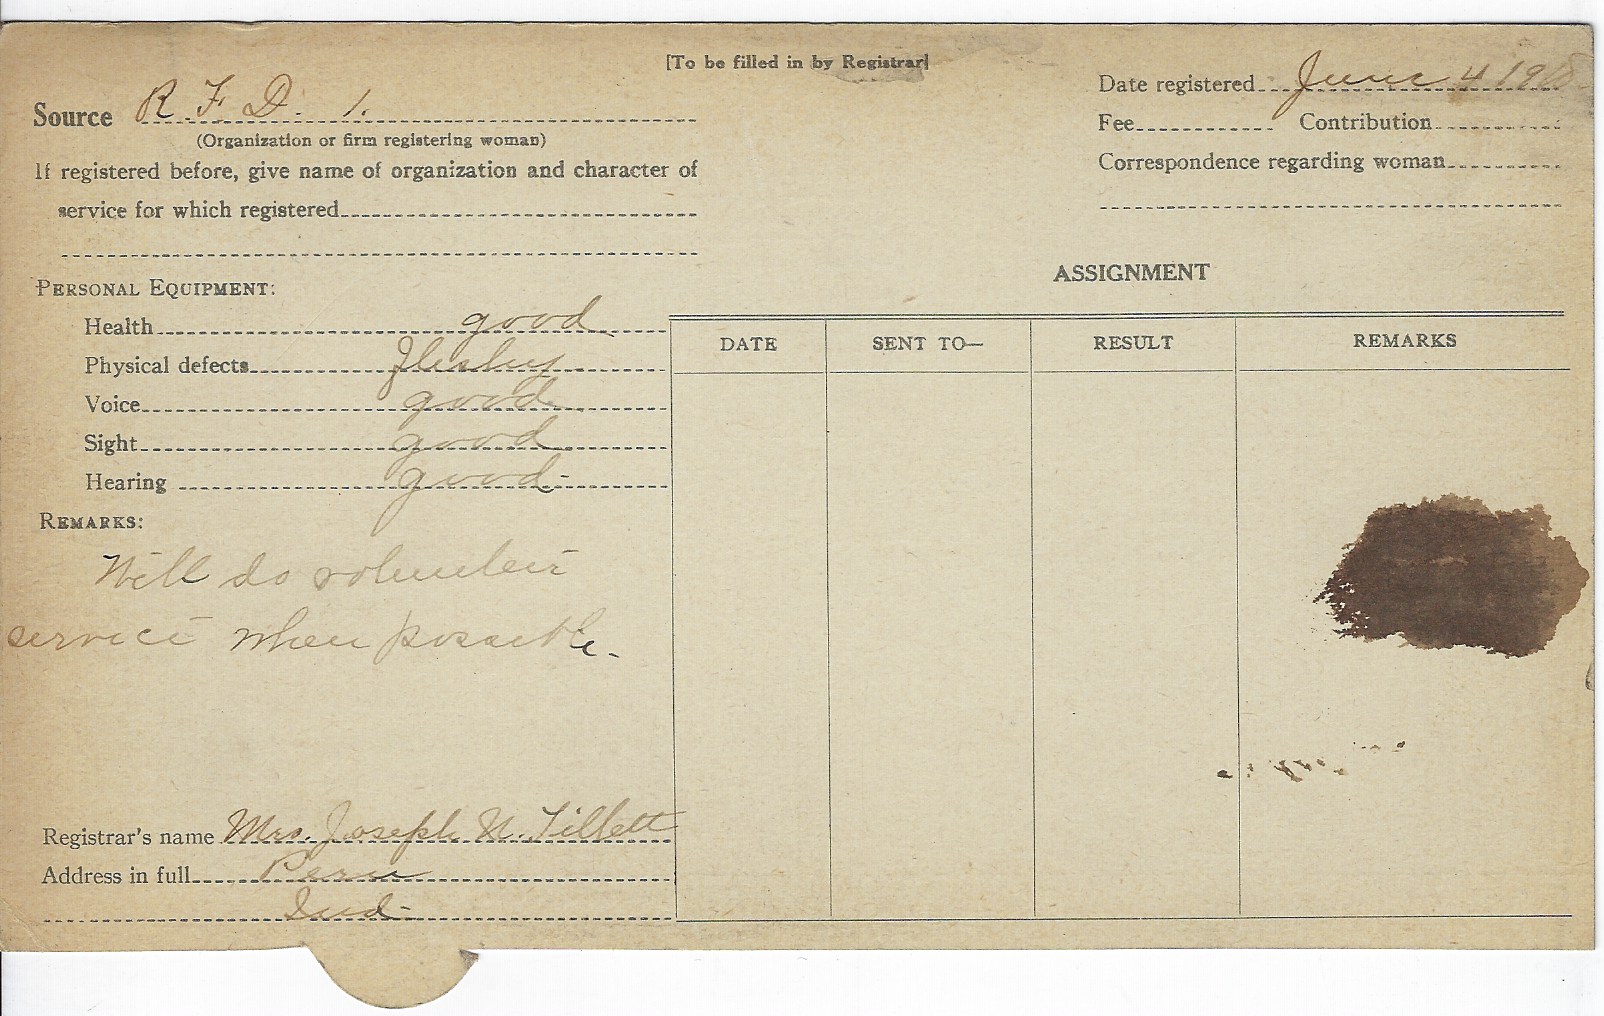 [To be filled in by Registrar]
Source R. F. D. 1.
(Organization or firm registering woman)
If registered before, give name of organization and character of
service for which registered
Date registered June 4 191
Fee Contribution
Correspondence regarding woman
PERSONAL EQUIPMENT:
Health good
Physical defects fleshy
Voice good
Sight good
Hearing good
REMARKS:
Will do volunteer
service when possible.
Registrar's name Mrs. Joseph N. Tillett
Address in full Peru
Ind.
ASSIGNMENT
DATE SENT TO— RESULT REMARKS